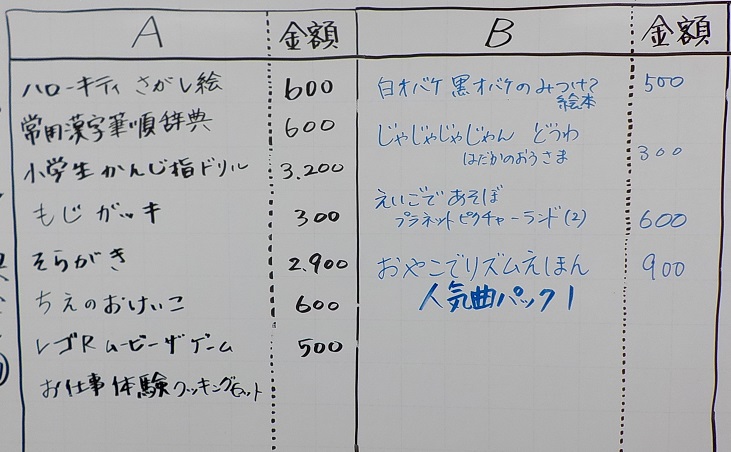 A 金額 B 金額
ハローキティ さがし絵 600
常用漢字筆順辞典 600
小学生かんじ指ドリル 3.200
もじガッキ 300
そらがき 2.900
ちえのおけいこ 600
レゴR ムービーザゲーム 500
お仕事体験クッキングセット
白オバケ黒オバケのみつけて 500
絵本
じゃじゃじゃじゃん どうわ
はだかのおうさま 300
えいごであそぼ
プラネットピクチャーランド(2) 600
おやこでリズムえほん 900
人気曲パック1